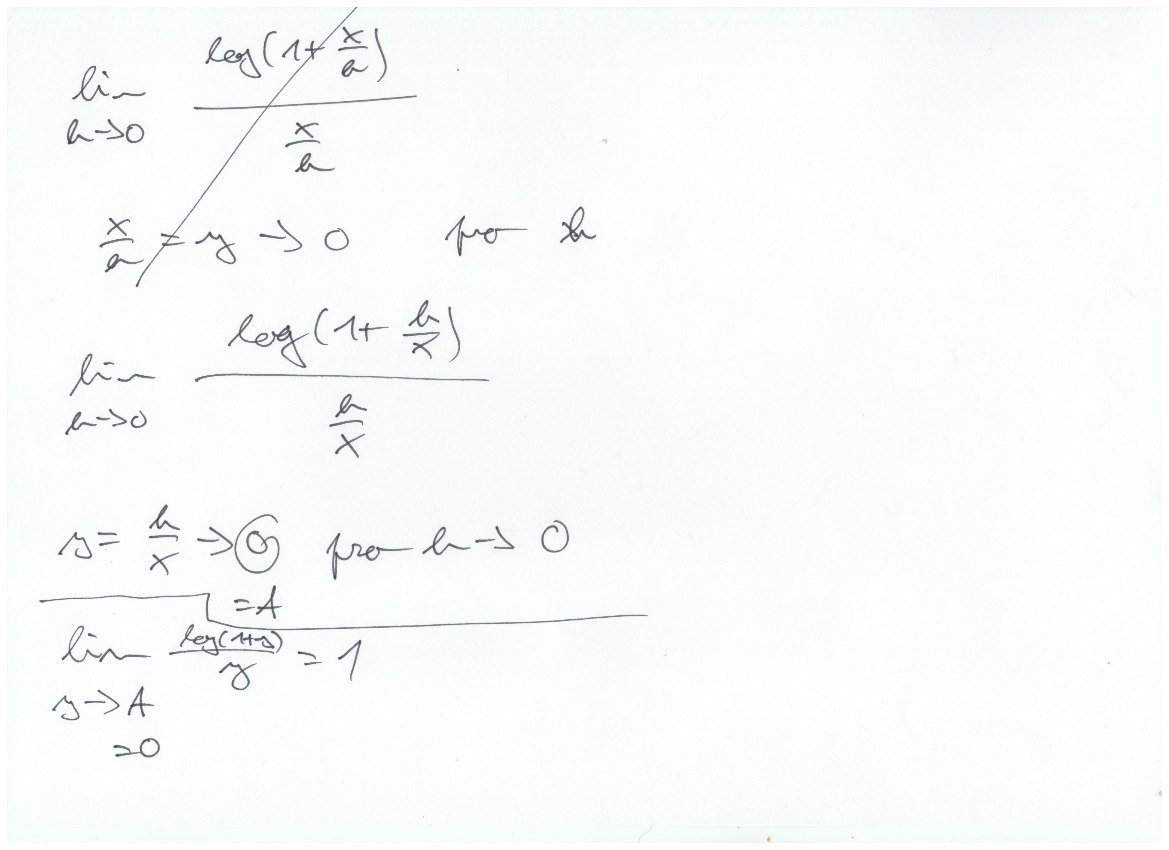 lim h→0 log(1+ x/h) / x/h
x/h = y → 0 pro h
lim h→0 log(1+ h/x) / h/x
y = h/x → 0 pro h → 0
= A
lim y→A log(1+y)/y = 1
=0